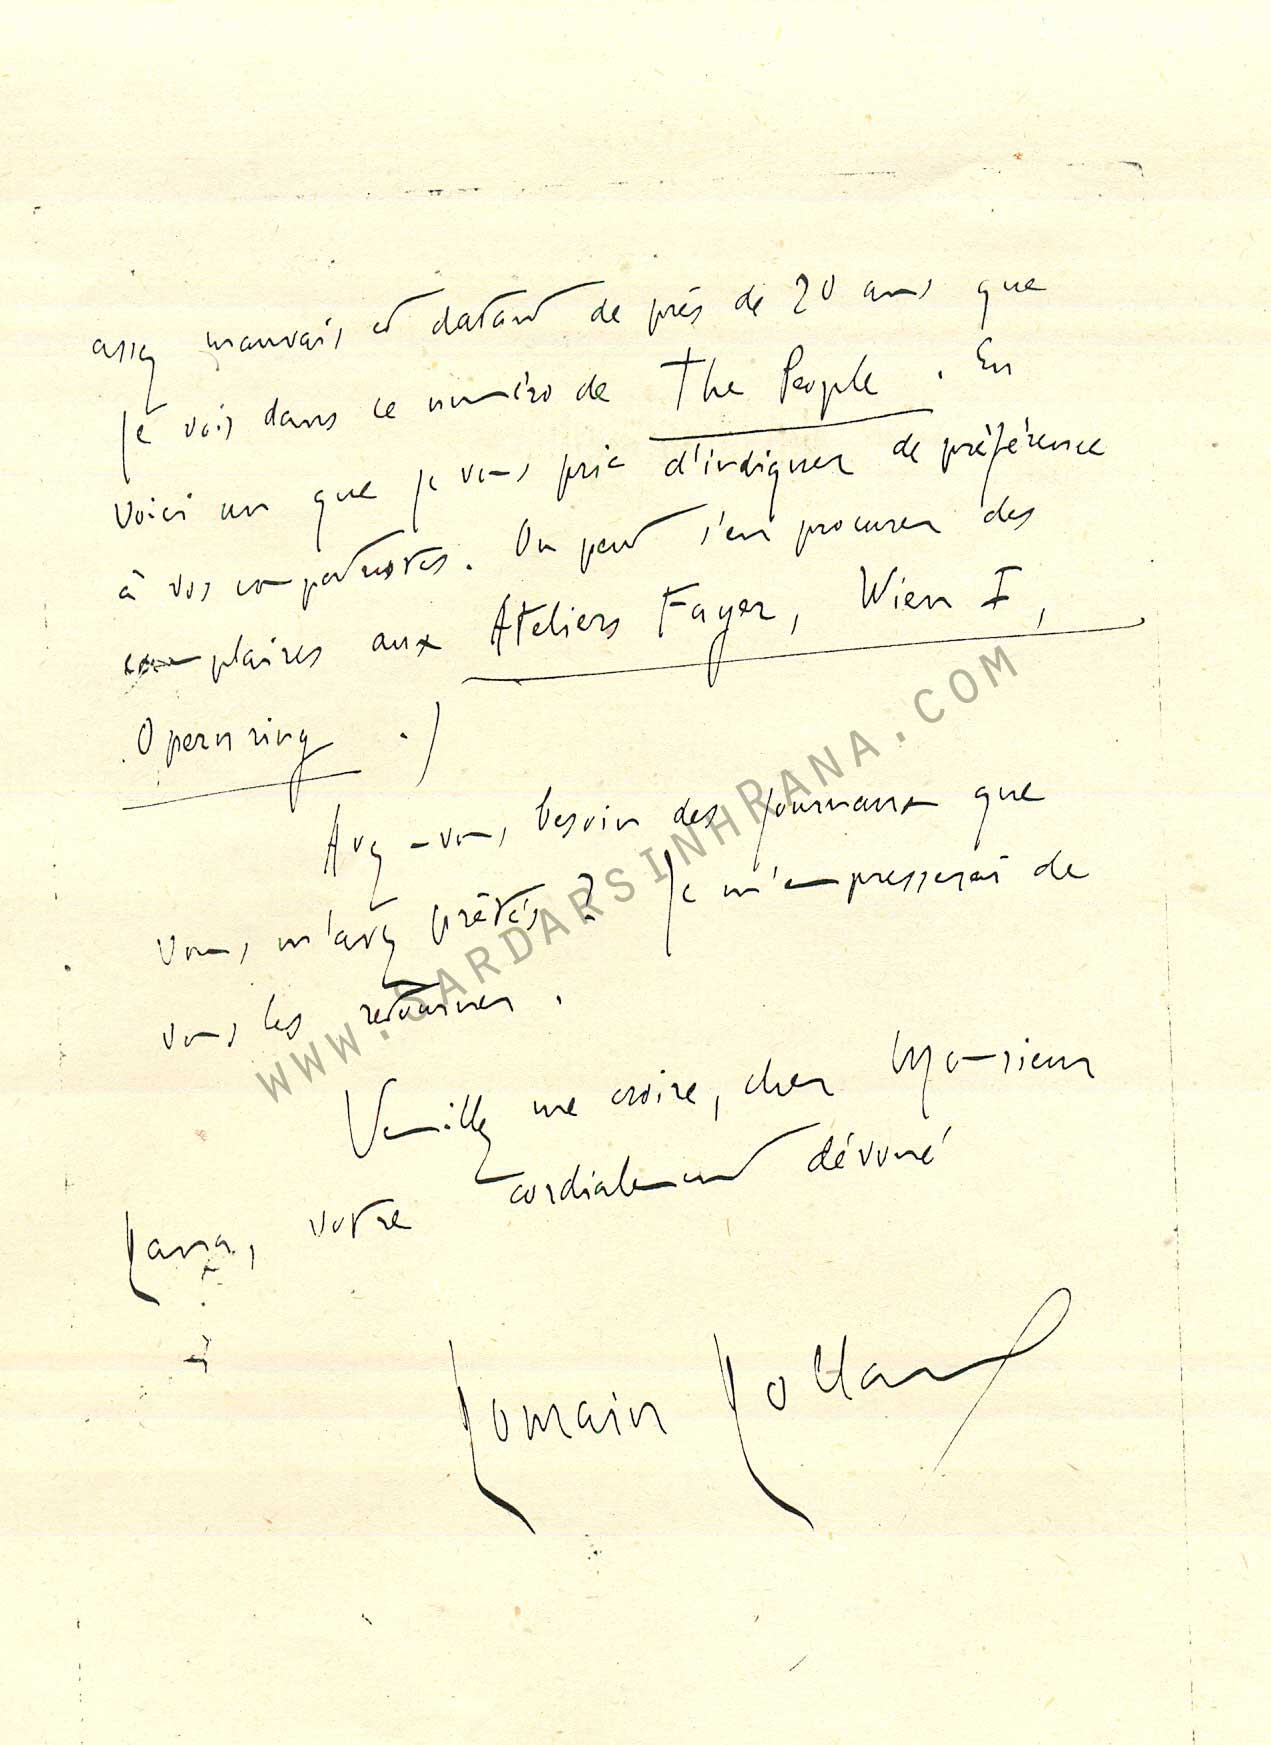 assez mauvais et datant de près de 20 ans que
je vois dans ce numéro de The People. En
voici un que je vous prie d'indiquer de préférence
à vos compatriotes. On peut s'en procurer des
exemplaires aux Ateliers Fayer, Wien I,
Opernring.)
Avez-vous besoin des journaux que
vous m'avez prêtés? Je m'empresserai de
vous les retourner.
Veuillez me croire, cher Monsieur
Rana, votre cordialement dévoué
Romain Rolland
WWW.SARDARSINHRANA.COM